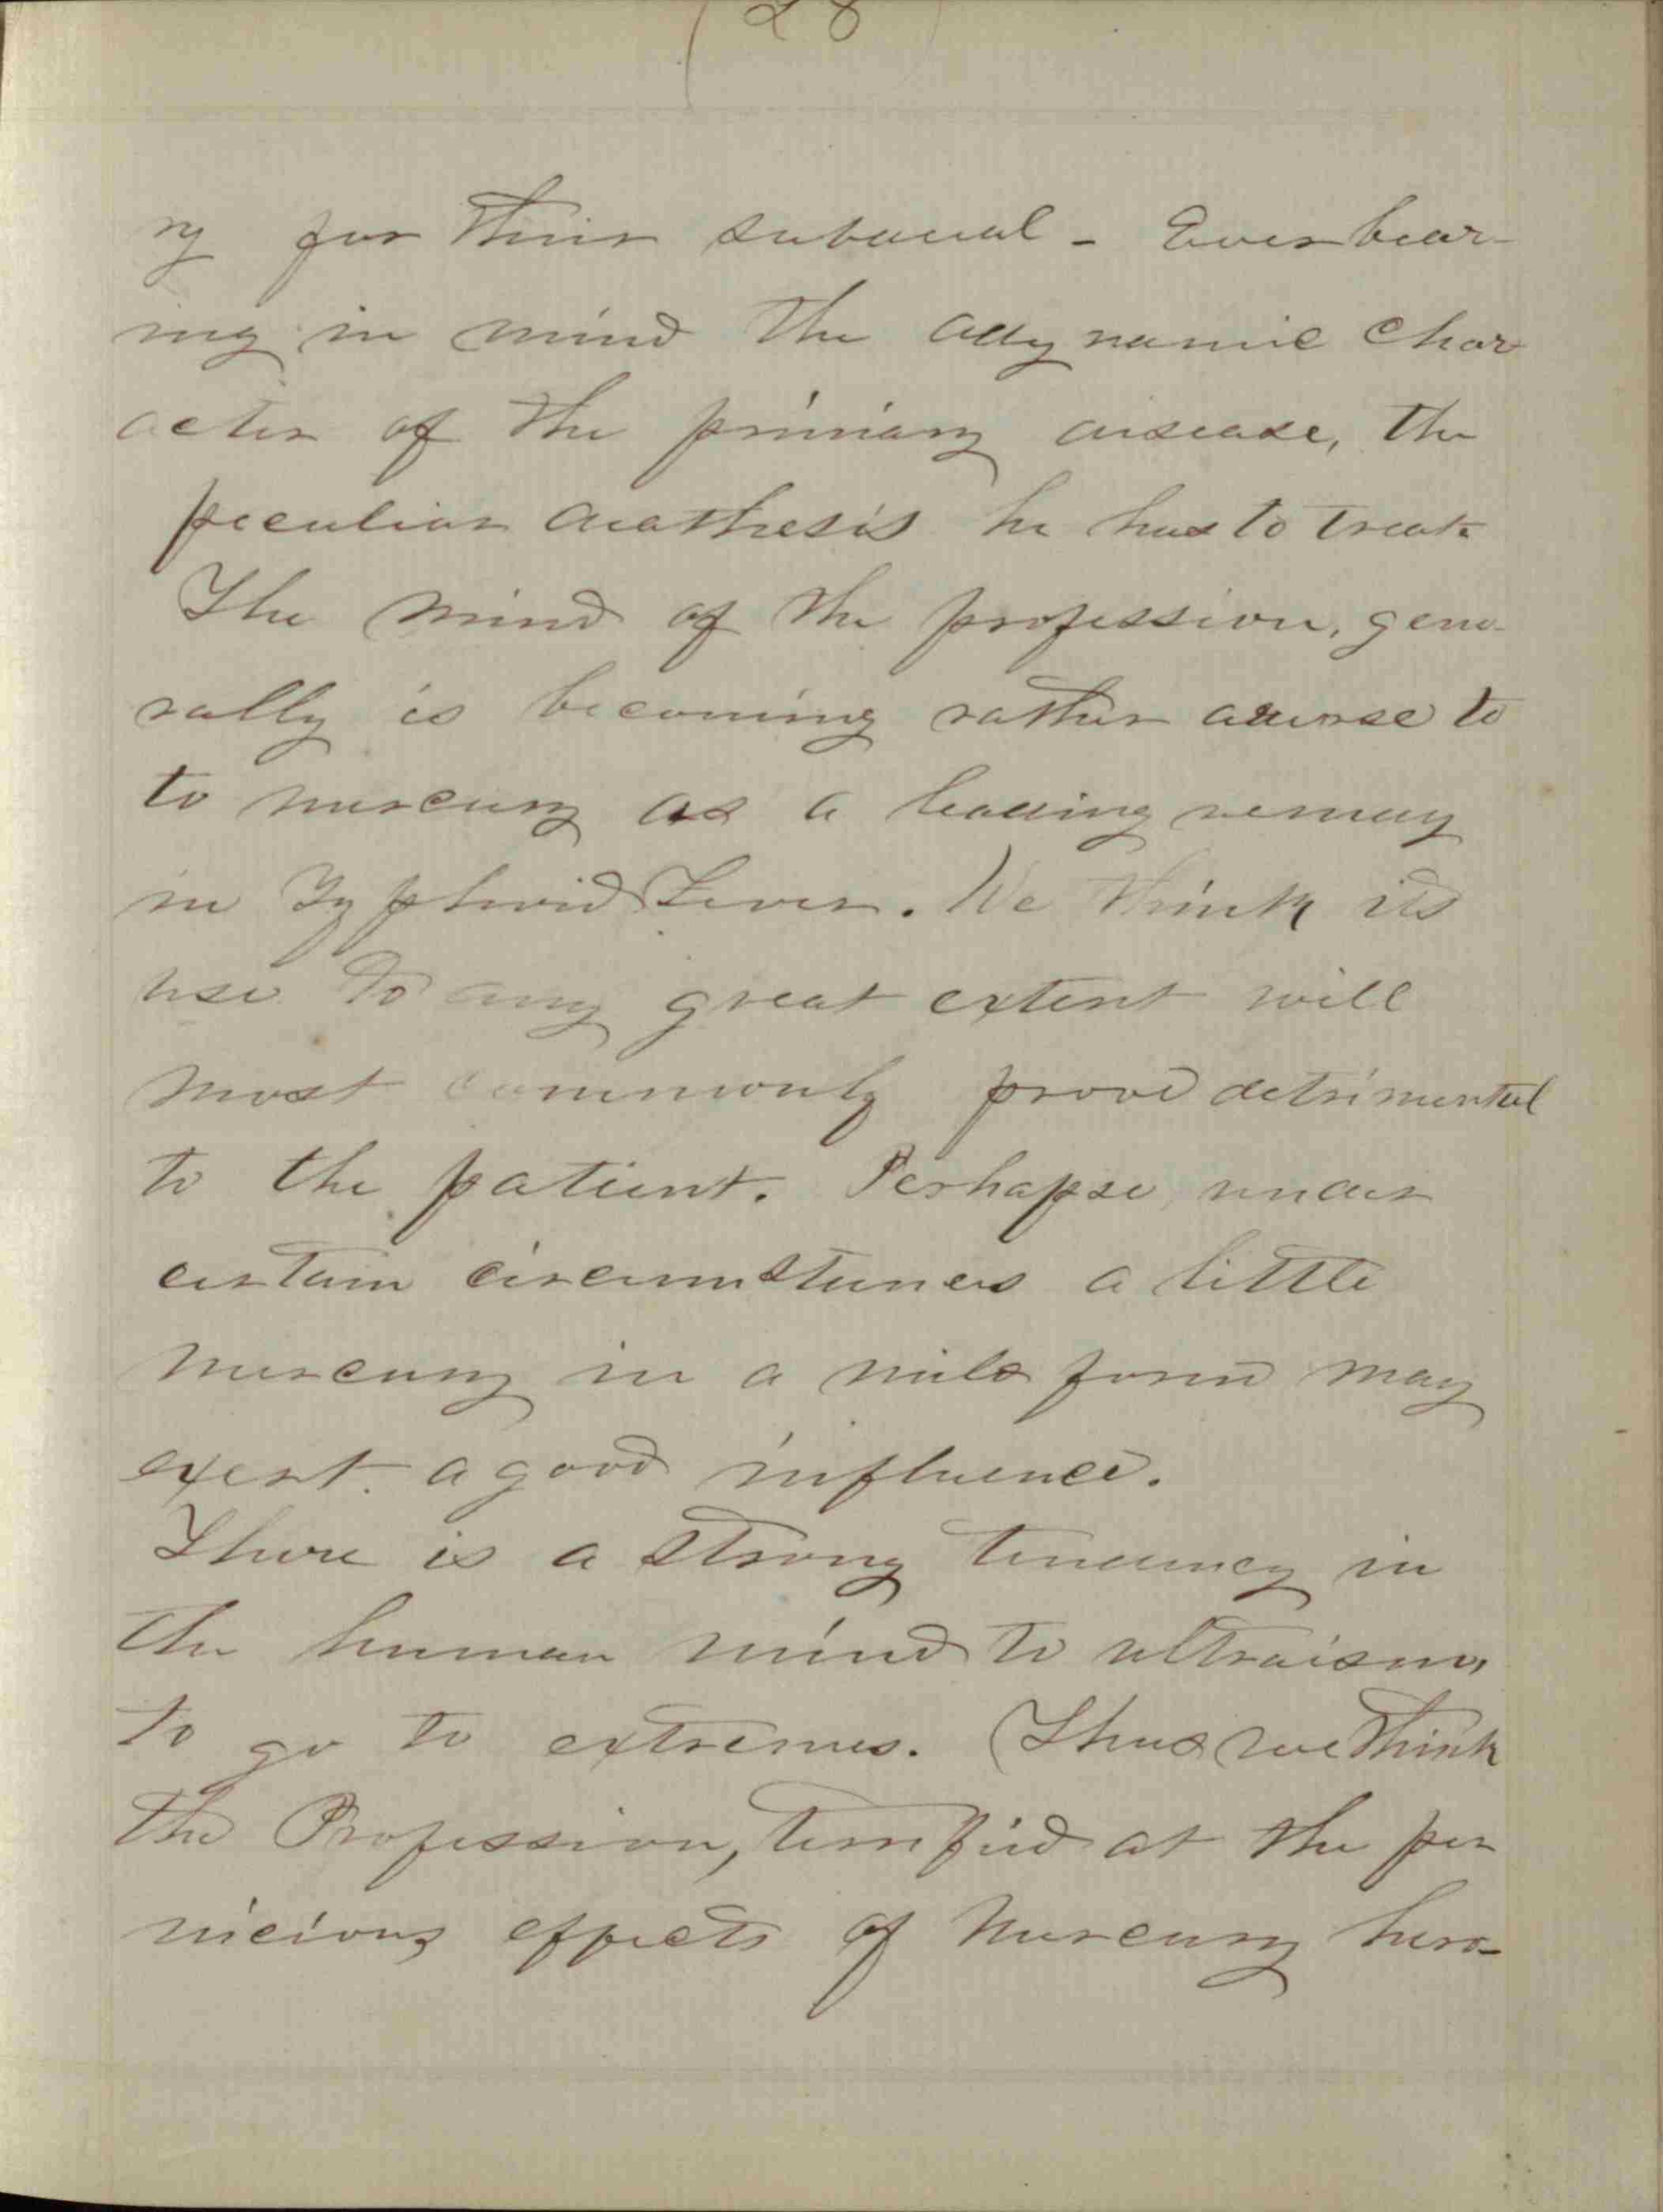 (28)
ry for their subdual - Ever bear-
ing in mind the adynamic char
acter of the primary disease, the
peculiar diathesis he has to treat.
The mind of the profession, gene-
rally is becoming rather averse to
to mercury as a leading remedy
in Typhoid Fever. We think its
use to any great extent will
most commonly prove detrimental
to the patient. Perhapse, under
certain circumstances a little
mercury in a mild form may
exert a good influence.
There is a strong tendency in
the human mind to ultraism,
to go to extremes. Thus we think
the Profession, terrified at the per
nicious effects of Mercury hero-